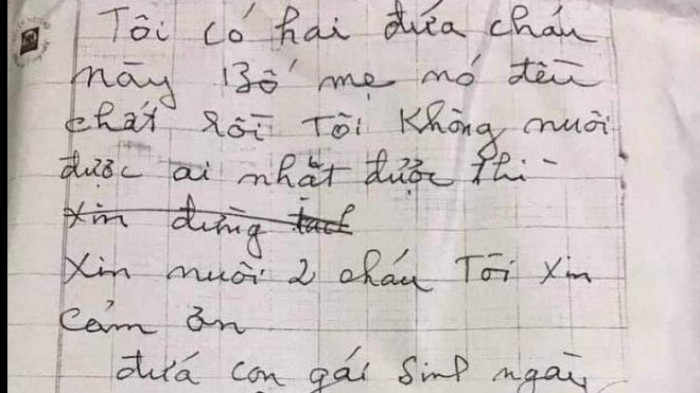 Tôi có hai đứa cháu
này Bố mẹ nó đều
chất rồi Tôi Không nuôi
được ai nhặt được thì
xin đừng tách
Xin nuôi 2 cháu Tôi xin
cảm ơn
đứa con gái sinh ngày